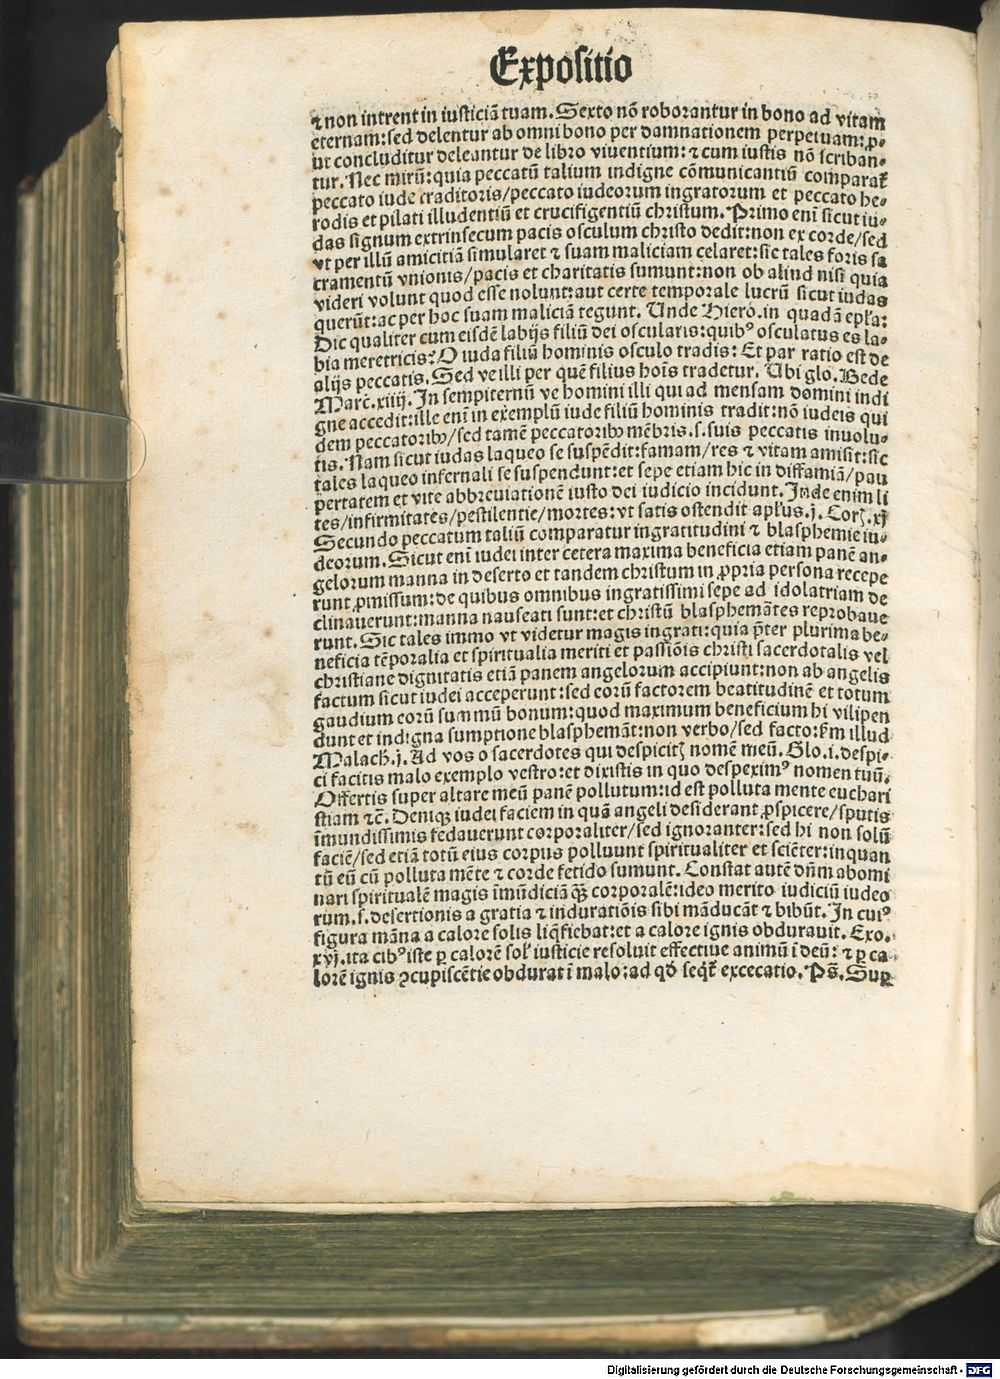 Expositio
⁊ non intrent in iusticiã tuam. Sexto nõ roborantur in bono ad vitam
eternam: sed delentur ab omni bono per damnationem perpetuam: ꝓ-
ut concluditur deleantur de libro viuentium: ⁊ cum iustis nõ scriban-
tur. Nec mirũ: quia peccatũ talium indigne cõmunicantiũ comparat᷑
peccato iude traditoris/peccato iudeorum ingratorum et peccato he-
rodis et pilati illudentiũ et crucifigentiũ christum. Primo eni̅ sicut iu-
das signum extrinsecum pacis osculum christo dedit: non ex corde/sed
vt per illũ amicitiã simularet ⁊ suam maliciam celaret: sic tales foris sa
cramentũ vnionis/pacis et charitatis sumunt: non ob aliud nisi quia
videri volunt quod esse nolunt: aut certe temporale lucrũ sicut iudas
querũt: ac per hoc suam maliciã tegunt. Unde Hiero. in quadã epl̃a:
Dic qualiter cum eisdẽ labijs filiũ dei oscularis: quibꝰ osculatus es la-
bia meretricis? O iuda filiũ hominis osculo tradis: Et par ratio est de
alijs peccatis. Sed ve illi per quẽ filius hoĩs tradetur. Ubi glo. Bede
Marc̃. xiiij. In sempiternũ ve homini illi qui ad mensam domini indi
gne accedit: ille eni̅ in exemplũ iude filiũ hominis tradit: nõ iudeis qui
dem peccatoribꝰ/sed tamẽ peccatoribꝰ mẽbris. s. suis peccatis inuolu-
tis. Nam sicut iudas laqueo se suspẽdit: famam/res ⁊ vitam amisit: sic
tales laqueo infernali se suspendunt: et sepe etiam hic in diffamiã/pau
pertatem et vite abbreuiationẽ iusto dei iudicio incidunt. Inde enim li
tes/infirmitates/pestilentie/mortes: vt satis ostendit apl̃us. j. Corꝭ. xj
Secundo peccatum taliũ comparatur ingratitudini ⁊ blasphemie iu-
deorum. Sicut eni̅ iudei inter cetera maxima beneficia etiam panẽ an-
gelorum manna in deserto et tandem christum in ꝓpria persona recepe
runt ꝓmissum: de quibus omnibus ingratissimi sepe ad idolatriam de
clinauerunt: manna nauseati sunt: et christũ blasphemãtes reprobaue
runt. Sic tales immo vt videtur magis ingrati: quia p̃ter plurima be-
neficia tẽporalia et spiritualia meriti et passiõis christi sacerdotalis vel
christiane dignitatis etiã panem angelorum accipiunt: non ab angelis
factum sicut iudei acceperunt: sed eorũ factorem beatitudinẽ et totum
gaudium eorũ summũ bonum: quod maximum beneficium hi vilipen
dunt et indigna sumptione blasphemãt: non verbo/sed facto: km̃ illud
Malach̃. j. Ad vos o sacerdotes qui despicitꝭ nomẽ meũ. Glo. i. despi-
ci facitis malo exemplo vestro: et dixistis in quo despeximꝰ nomen tuũ.
Offertis super altare meũ panẽ pollutum: id est polluta mente euchari
stiam ⁊c̃. Deniqꝫ iudei faciem in quã angeli desiderant ꝓspicere/sputis
ĩmundissimis fedauerunt corporaliter/sed ignoranter: sed hi non solũ
faciẽ/sed etiã totũ eius corpus polluunt spiritualiter et sciẽter: inquan
tũ eũ cũ polluta mẽte ⁊ corde fetido sumunt. Constat autẽ dñm abomi
nari spiritualẽ magis ĩmũdiciã qꝫ̃ corporalẽ: ideo merito iudiciũ iudeo
rum. s. desertionis a gratia ⁊ induratiõis sibi mãducãt ⁊ bibũt. In cuiꝰ
figura mãna a calore solis liq̃fiebat: et a calore ignis obdurauit. Exo.
xvj. ita cibꝰ iste ꝑ calorẽ sol̕ iusticie resoluit effectiue animũ ĩ deũ: ⁊ ꝑ ca-
lorẽ ignis ꝯcupiscẽtie obdurat ĩ malo: ad qd̃ seq̃t᷑ excecatio. Ps̃. Suꝑ
Digitalisierung gefördert durch die Deutsche Forschungsgemeinschaft - DFG